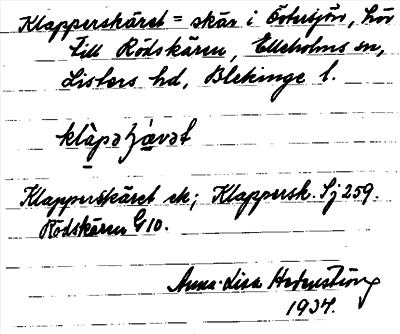 Klapperskäret = skär i Östersjön, hör
till Rödskären, Elleholms sn,
Listers hd, Blekinge l.
Klapperskäret ek; Klappersk. Sj 259.
Rödskären G 10.
Anna-Lisa Hedenström
1934.